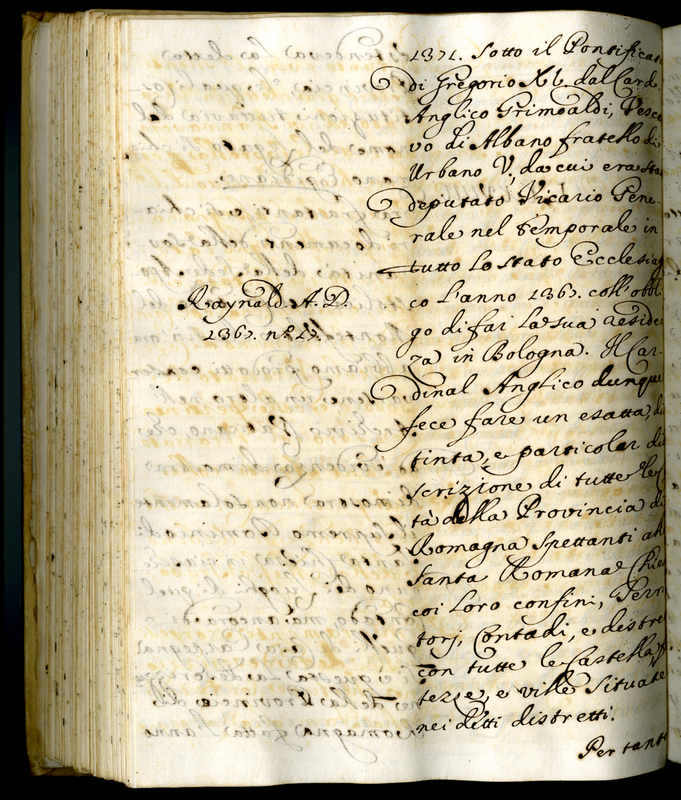 1371. Sotto il Pontificat
di Gregorio XI. dal Card.
Anglico Grimoaldi, Vesco
vo di Albano fratello di
Urbano V, da cui era sta
deputato Vicario Gene-
rale nel temporale in
tutto lo stato Ecclesias
co l'anno 1367. coll'obbli
go di far la sua reside
za in Bologna. Il Car-
dinal Anglico dunque
fece fare un esatta, di
tinta, e particolar di
scrizione di tutte le C
tà della Provincia di
Romagna spettanti all
Santa Romana Chie
coi loro confini, Terri
torj, Contadi, e distret
con tutte le Castella, f
tezze, e ville situate
nei detti distretti.
Per tant
Raynald. A. D.
1367. nº. 17.